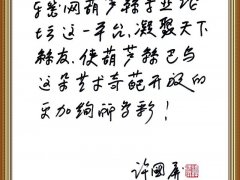 乐器网葫芦丝专业论
坛这一平台，凝聚天下
丝友，使葫芦丝巴乌
这朵艺术奇葩开放的
更加绚丽多彩！
许国屏